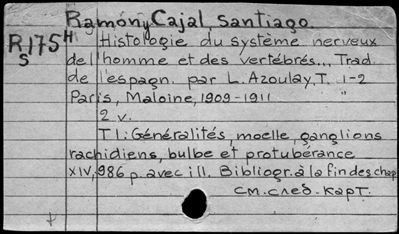 Ramón y Cajal, Santiago.
R175 H Histologie du système nerveux
S de l'homme et des vertébrés... Trad.
de l'espagn. par L. Azoulay, T. 1-2
Paris, Maloine, 1909-1911 "
2 v.
T I: Généralités, moelle, ganglions
rachidiens, bulbe et protubérance
XIV, 986 p. avec ill. Bibliogr. à la fin des chap
см. след. карт.